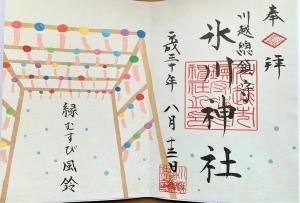 奉拝
川越總鎮守
氷川神社
平成三十年 八月十二日
縁むすび風鈴